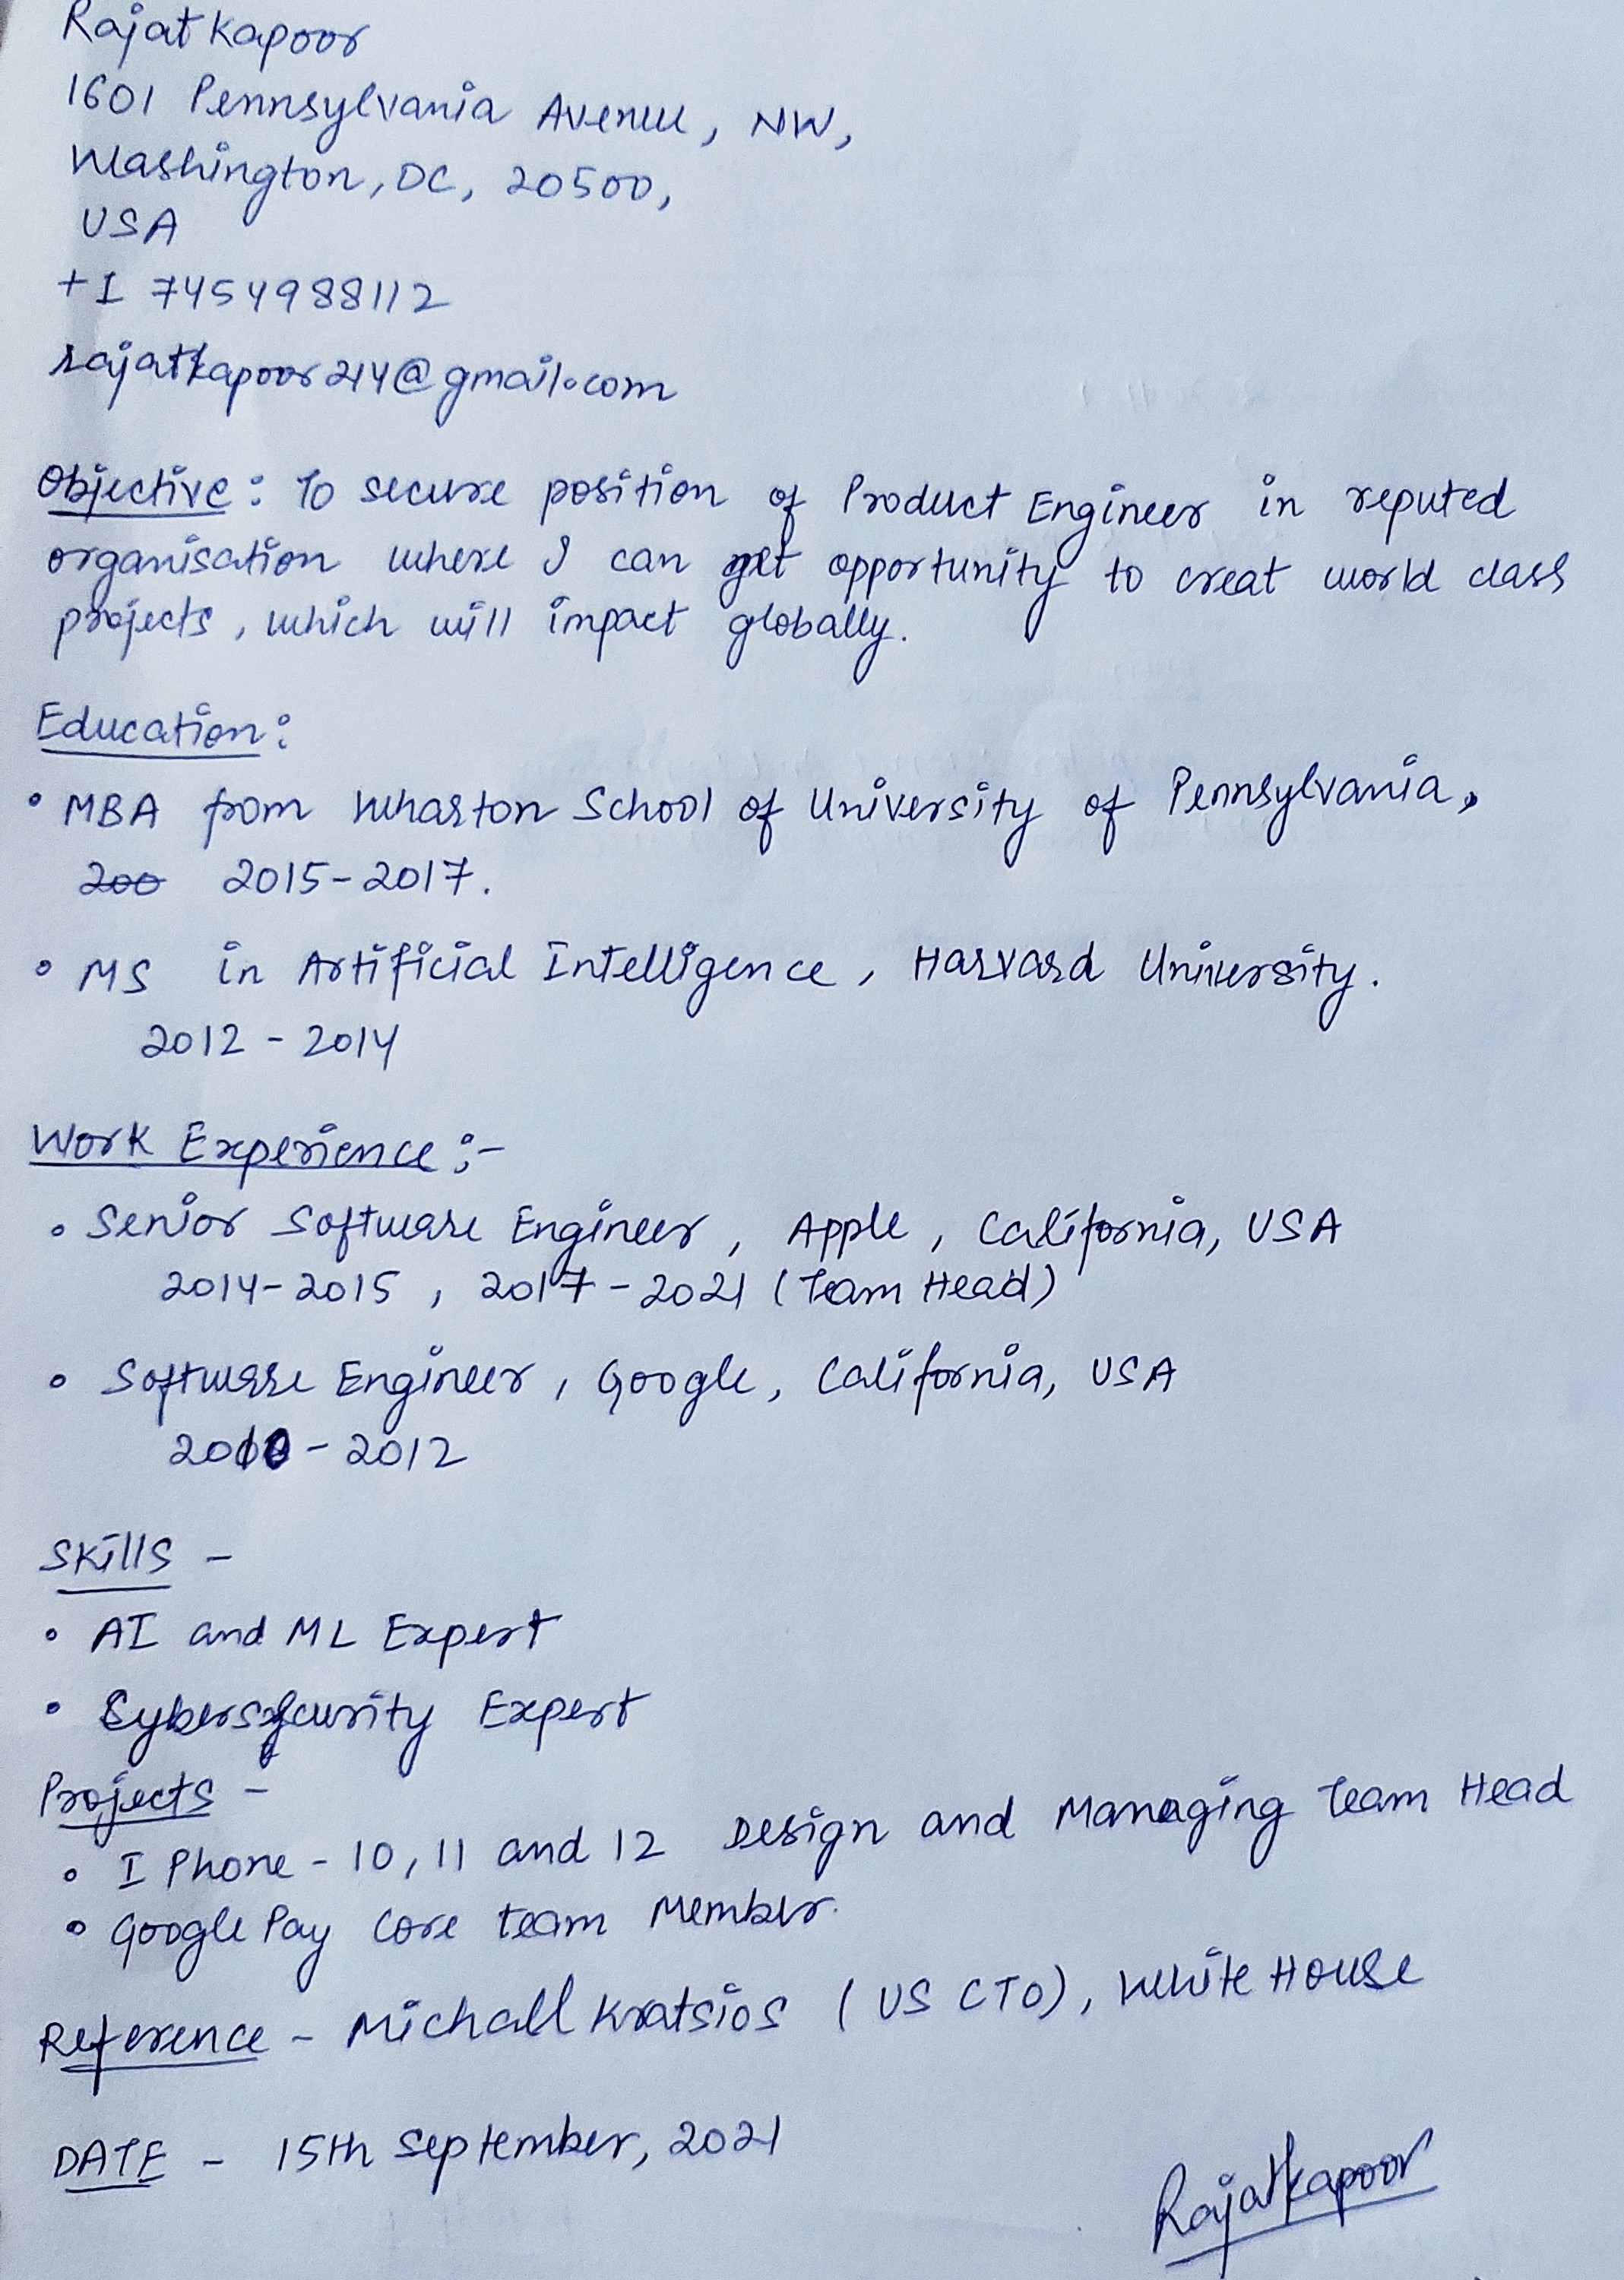 Rajat Kapoor
1601 Pennsylvania Avenue, NW,
Washington, DC, 20500,
USA
+1 7454988112
rajatkapoor214@gmail.com
Objective: To secure position of Product Engineer in reputed
organisation where I can get opportunity to creat world class
projects, which will impact globally.
Education:
• MBA from Wharton School of University of Pennsylvania,
200 2015-2017.
• MS in Artificial Intelligence, Harvard University.
2012 - 2014
Work Experience :-
• Senior Software Engineer, Apple, California, USA
2014-2015, 2017-2021 (Team Head)
• Software Engineer, Google, California, USA
2010 - 2012
Skills -
• AI and ML Expert
• Cybersecurity Expert
Projects -
• I Phone - 10, 11 and 12 Design and Managing Team Head
• Google Pay Core team Member.
Reference - Michall Kratsios (US CTO), White House
DATE - 15th September, 2021
Rajatkapoor